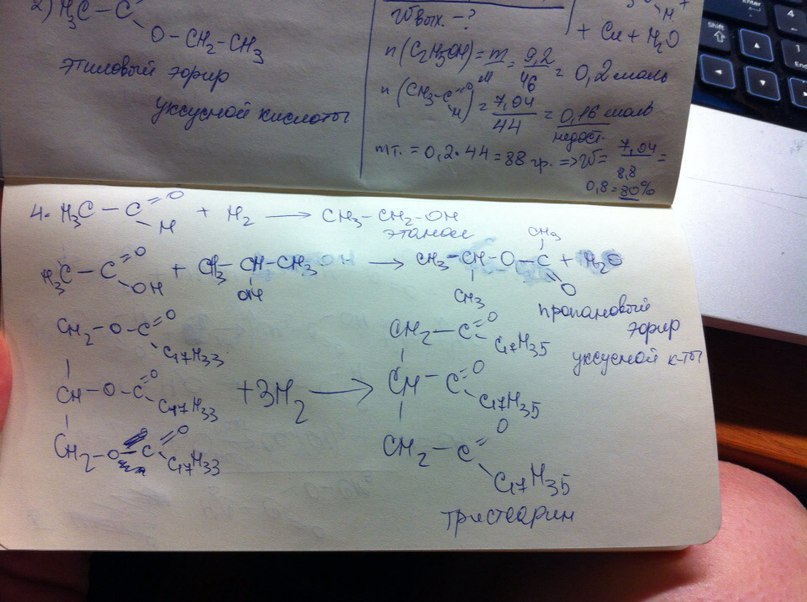 2) H₃C – C
O – CH₂ – CH₃
этиловый эфир
уксусной кислоты
Wвых. – ?
n (C₂H₅OH) = m/M = 9,2/46 = 0,2 моль
n (CH₃ – C =O H) = 7,04/44 = 0,16 моль
недост.
mт. = 0,2 · 44 = 88 гр. => W = 7,04/8,8 =
0,8 = 80%
H
+ Cu + H₂O
4. H₃C – C =O H + H₂ → CH₃ – CH₂ – OH
этанол
H₃C – C =O OH + CH₃ – CH – CH₃ → CH₃ – CH – O – C – CH₃ + H₂O
OH CH₃ O
пропановый
эфир
уксусной к-ты
CH₂ – O – C =O C₁₇H₃₃ CH₂ – C =O C₁₇H₃₅
CH – O – C =O C₁₇H₃₃ + 3H₂ → CH – C =O C₁₇H₃₅
CH₂ – O – C =O C₁₇H₃₃ CH₂ – C =O C₁₇H₃₅
тристеарин
Shift
Enter